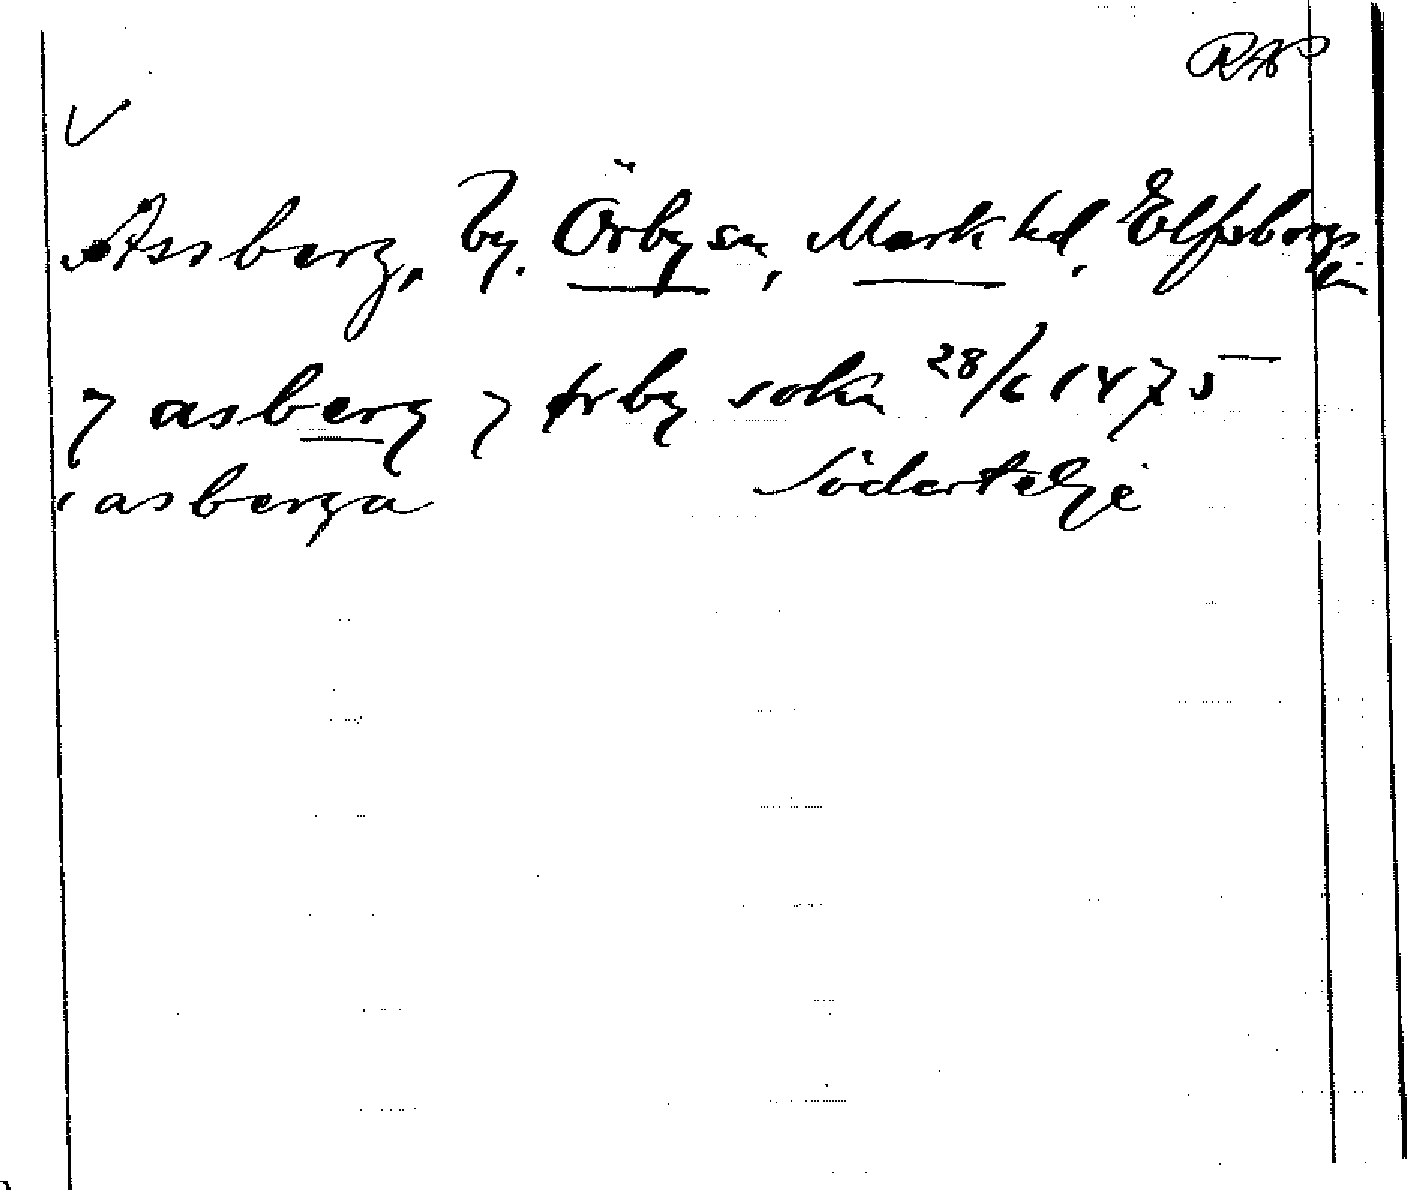 RAP
V
Assberg, by. Örby sn, Mark hd, Elfsborgs
län
j asberg j ørby sokn 28/6 1475
i asberga Södertelje